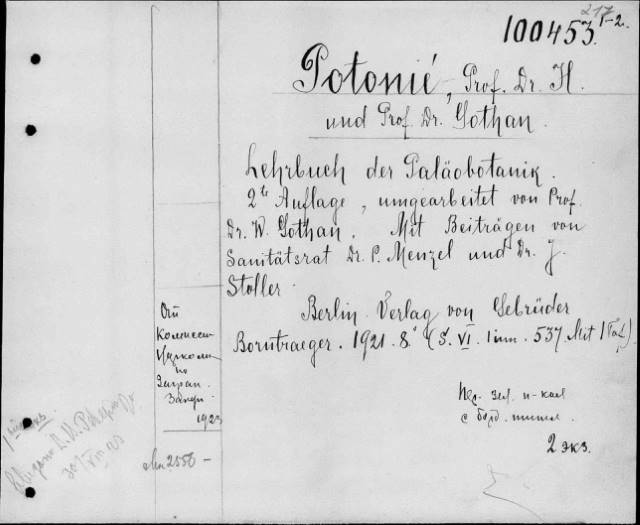 217
100453 1-2.
Potonié, Prof. Dr. H.
und Prof. Dr. Gothan.
Lehrbuch der Paläobotanik.
2te Auflage, umgearbeitet von Prof.
Dr. W. Gothan. Mit Beiträgen von
Sanitätsrat Dr. P. Menzel und Dr. J.
Stoller.
Berlin. Verlag von Gebrüder
Borntraeger. 1921. 8° (S. VI. 1 inn. 537. Mit 1 Taf.)
От
по
Загран.
1923
2556 -
2 экз.